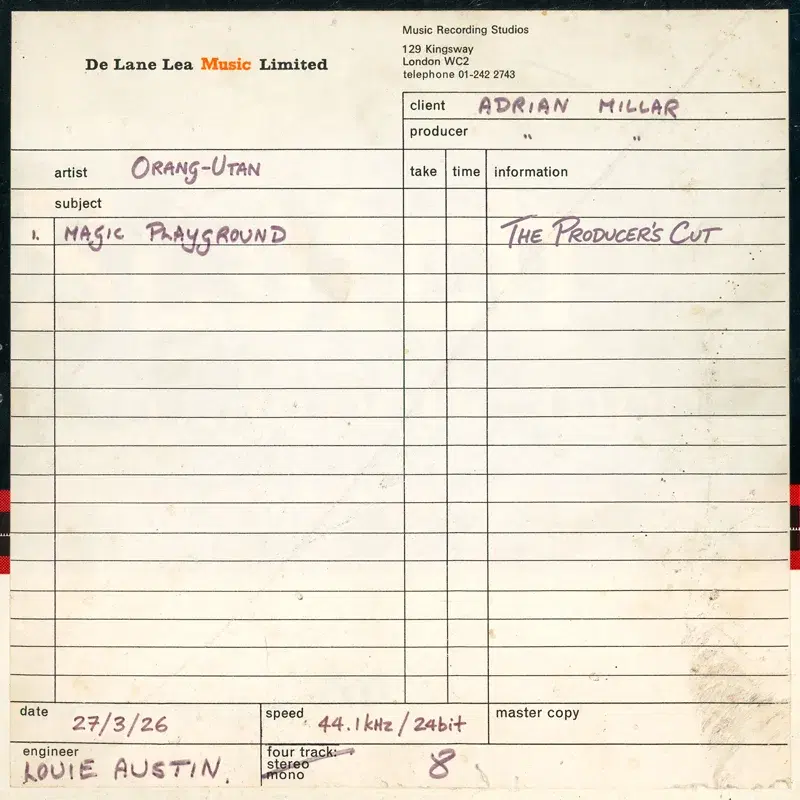 De Lane Lea Music Limited
Music Recording Studios
129 Kingsway
London WC2
telephone 01-242 2743
client ADRIAN MILLAR
producer " "
artist ORANG-UTAN
take time information
subject
1. MAGIC PLAYGROUND THE PRODUCER'S CUT
date 27/3/26
speed 44.1kHz / 24bit
master copy
engineer LOUIE AUSTIN.
four track:
stereo
mono
8